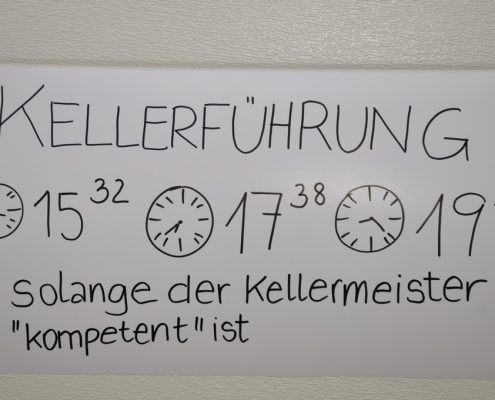 KELLERFÜHRUNG
15³² 17³⁸ 19
Solange der Kellermeister
"kompetent" ist